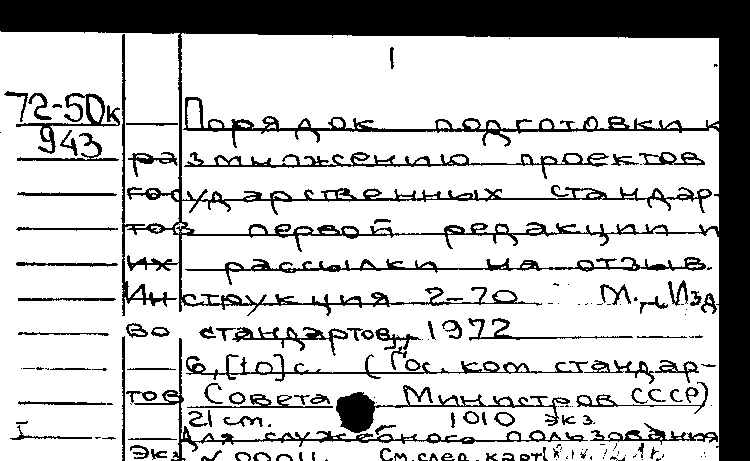 1
72-50к
943
Порядок подготовки к
размножению проектов
государственных стандар-
тов первой редакции и
их рассылки на отзыв.
Инструкция 2-70 М., Изд
во стандартов, 1972
6,[10]с. (Гос. ком. стандар-
тов Совета Министров СССР)
21 см. 1010 экз
I Для служебного пользования
экз № 00011. См. след. карт.